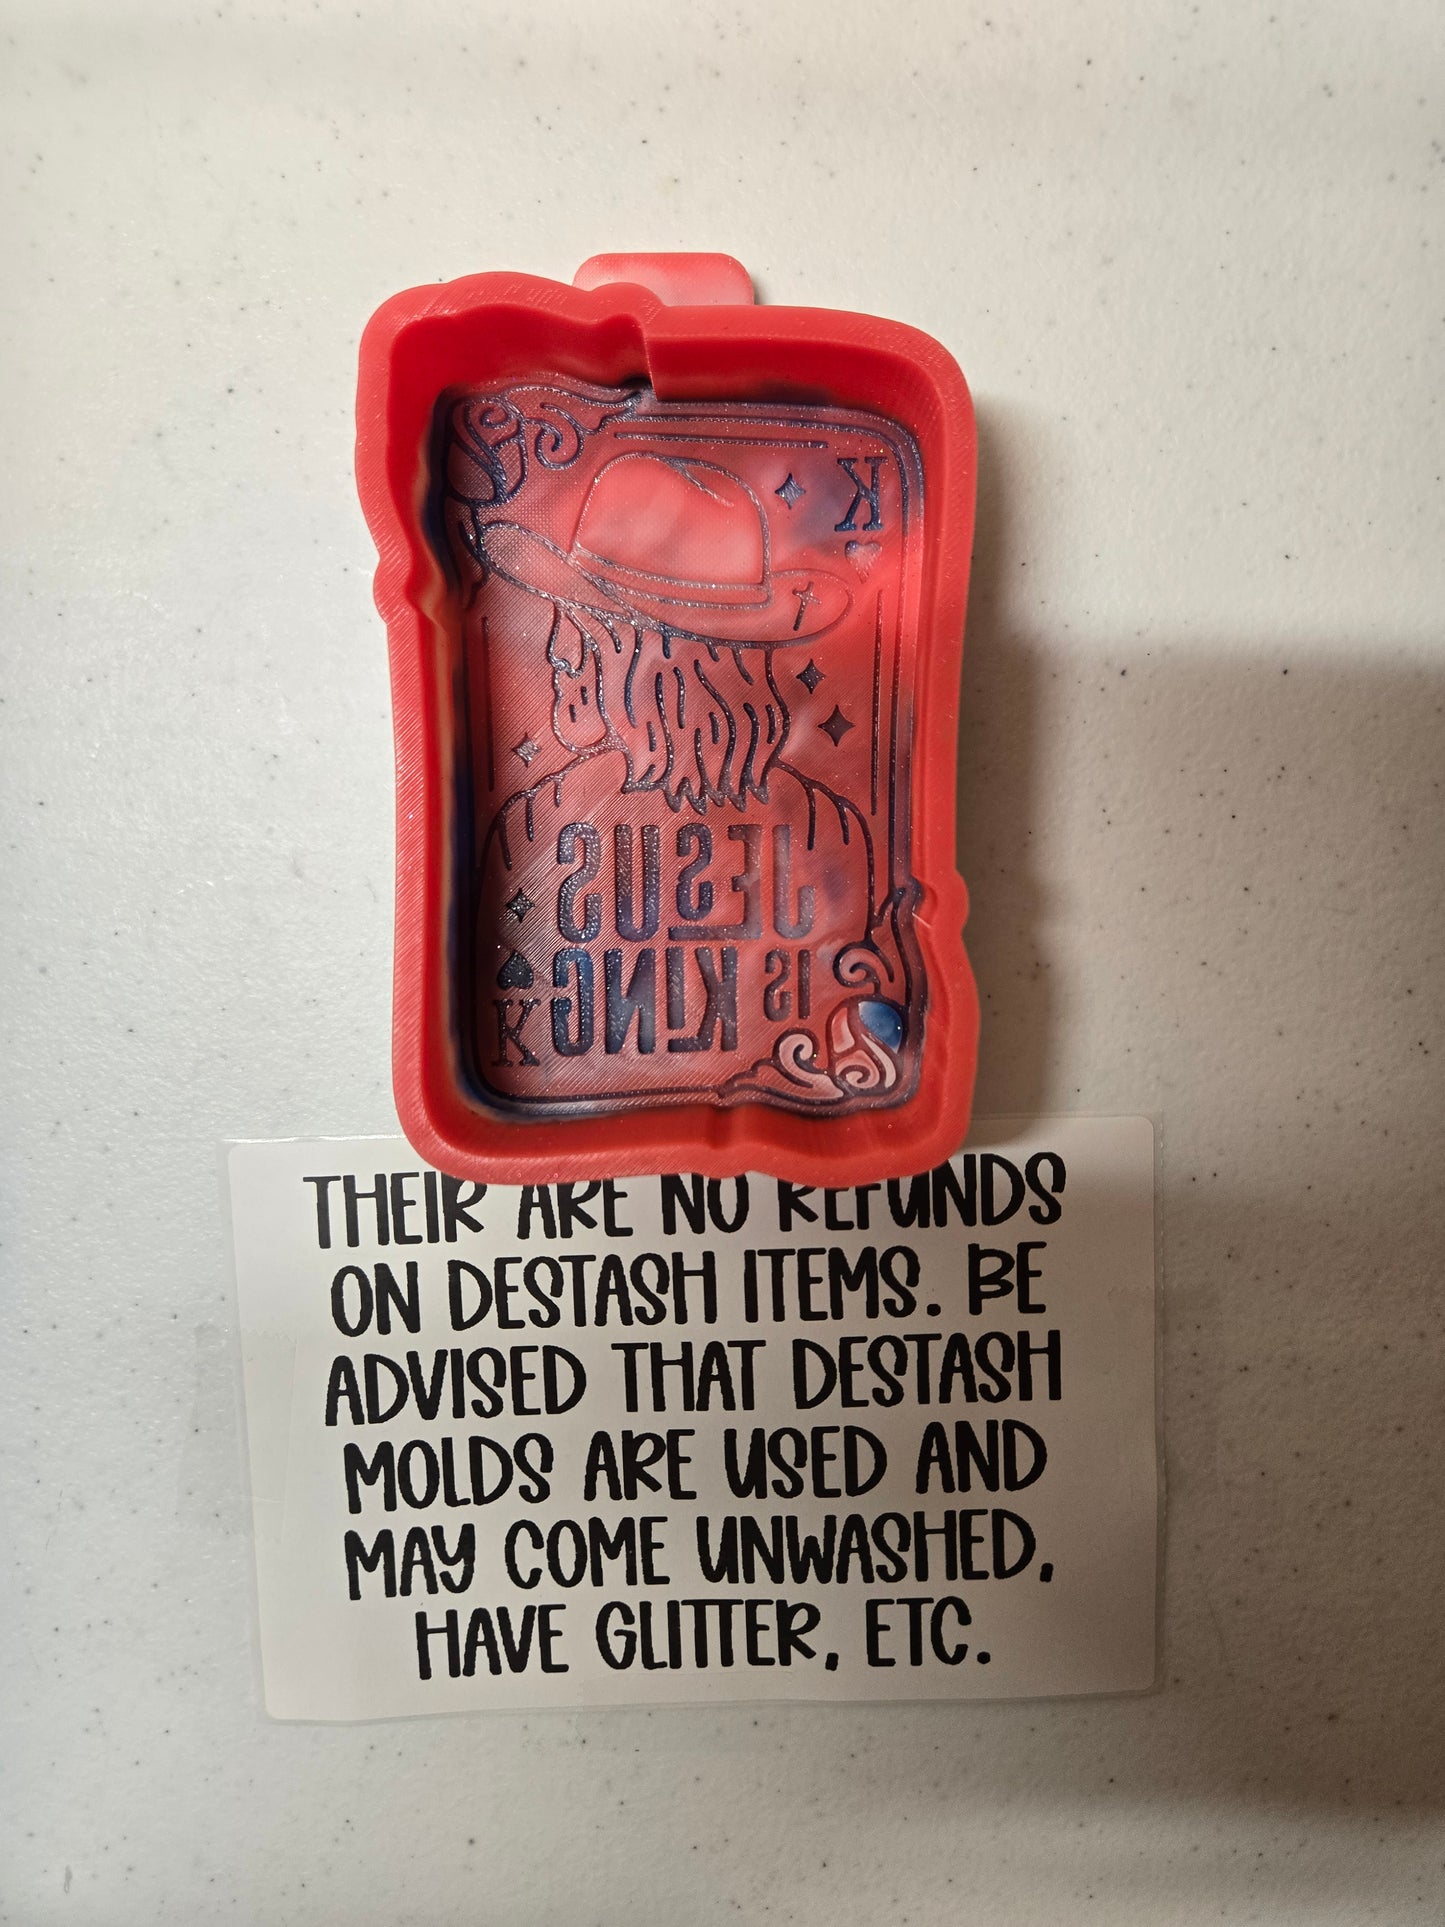 K
JESUS
IS KING
K
THEIR ARE NO REFUNDS
ON DESTASH ITEMS. BE
ADVISED THAT DESTASH
MOLDS ARE USED AND
MAY COME UNWASHED,
HAVE GLITTER, ETC.